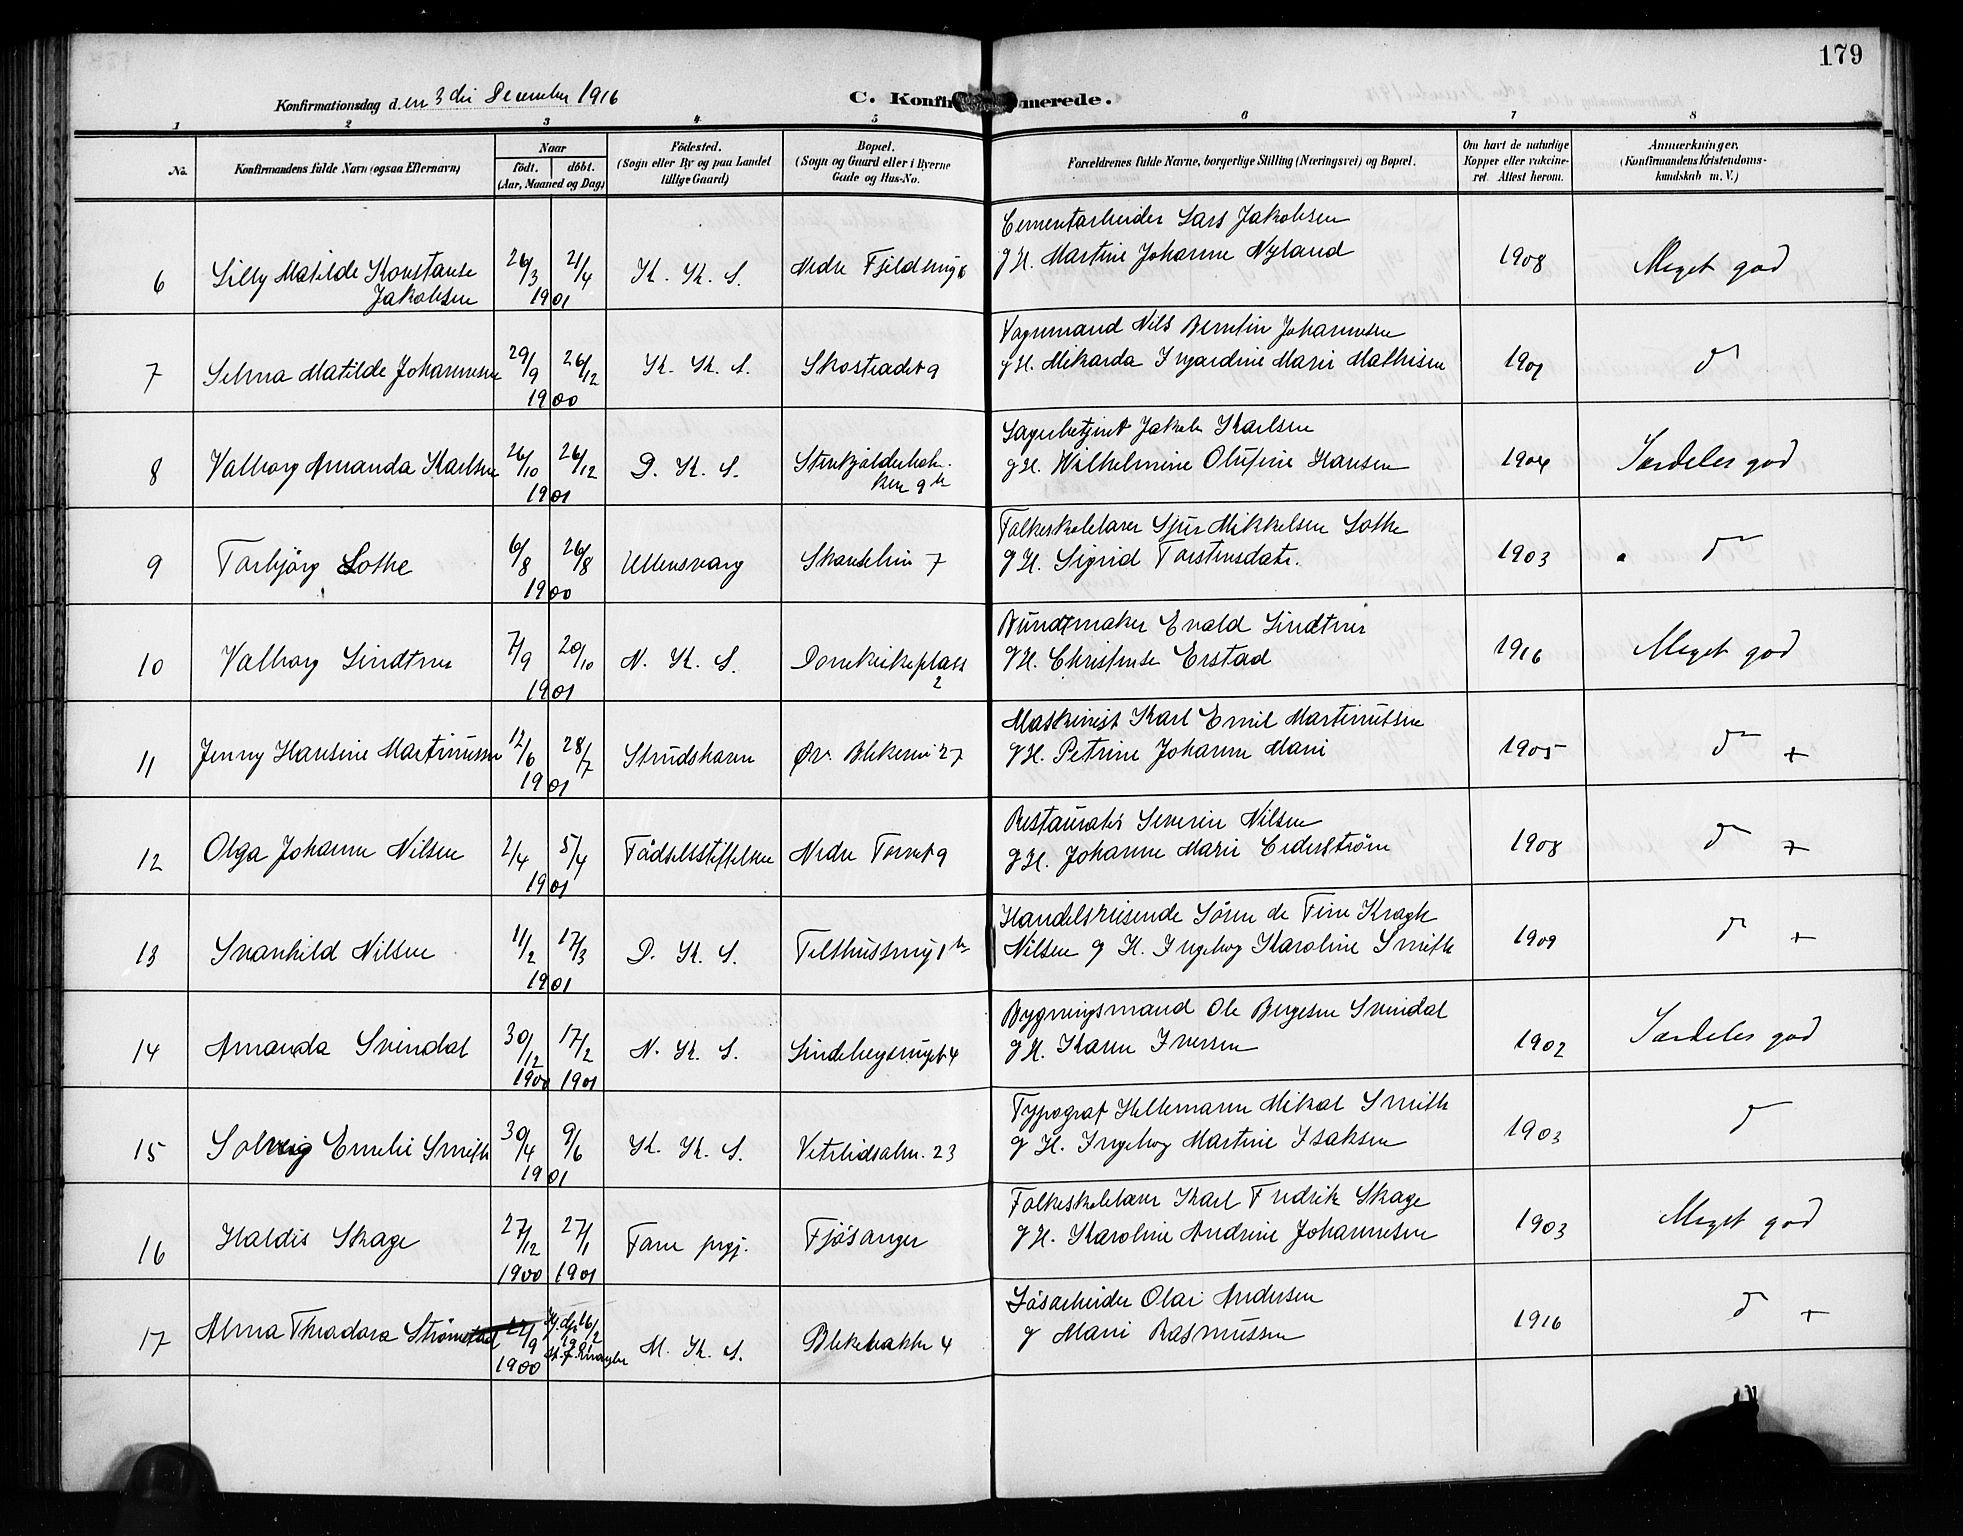 179
Konfirmationsdag den 3die December 1916
C. Konfirmerede.
1 2 3 4 5 6 7 8
No.
Konfirmandens fulde Navn (ogsaa Efternavn)
Naar
födt. döbt.
(Aar, Maaned og Dag)
Födested.
(Sogn eller By og paa Landet
tillige Gaard)
Bopæl.
(Sogn og Gaard eller i Byerne
Gade og Hus-No.
Forældrenes fulde Navne, borgerlige Stilling (Næringsvei) og Bopæl.
Om havt de naturlige
Kopper eller vakcine-
ret. Attest herom.
Anmærkninger.
(Konfirmandens Kristendoms-
kundskab m. V.)
Cementarbeider Lars Jakobsen
6 Lilly Matilde Konstanse 26/3 21/4 K. K. S. Nedre Fjeldsmug 6 g H. Martine Johanne Nyland 1908 Meget god
Jakobsen 1901
Vognmand Nils Berntin Johannesen
7 Selma Matilde Johannesen 29/9 26/12 K. K. S. Skostrædet 9 g H. Mekarda Ingardine Marie Mathisen 1901 do
1900
Lagerbetjent Jakob Karlsen
8 Valborg Amanda Karlsen 26/10 26/12 D. K. S. Stenkjælderbak- g H. Wilhelmine Olufine Hansen 1904 Særdeles god
1901 ken 9 b
Folkeskolelærer Sjur Mikkelsen Lothe
9 Torbjörg Lothe 6/8 26/8 Ullensvang Skanselien 7 g H. Sigrid Torstensdatr. 1903 do
1900
Buntmaker Evald Lindtner
10 Valborg Lindtner 7/9 20/10 N. K. S. Domkirkeplads g H. Christense Erstad 1916 Meget god
1901 2
Maskinist Karl Emil Martinussen
11 Jenny Hansine Martinussen 12/6 28/7 Strudshavn Øv. Blekevei 27 g H. Petrine Johanne Marie 1905 do +
1901
Restauratör Severin Nilsen
12 Olga Johanne Nilsen 2/4 5/4 Födselsstiftelsen Nedre Torvet 9 g H. Johanne Marie Cederström 1908 do +
1901
Handelsreisende Sören de Fine Kragh
13 Svanhild Nilsen 11/2 17/3 D. K. S. Telthussmug 1 b Nilsen g H. Ingeborg Karoline Smith 1909 do +
1901
Bygningsmand Ole Bergesen Svindal
14 Amanda Svindal 30/12 17/2 N. K. S. Lindebergsmuget 4 g H. Karen Iversen 1902 Særdeles god
1900 1901
Typograf Hellemann Mikal Smith
15 Solveig Emelie Smith 30/4 9/6 K. K. S. Vetrlidsalm. 23 g H. Ingeborg Martine Isaksen 1903 do
1901
Folkeskolelærer Karl Fredrik Skage
16 Haldis Skage 27/12 27/1 Fane prgj. Fjösanger g H. Karoline Andrine Johannesen 1903 Meget god
1900 1901
Lösarbeider Olai Andersen
17 Alma Theodora Strömstad 22/9 Hj.dp. 16/2 M. K. S. Blekebakke 4 g Marie Rasmussen 1916 do +
1900 1901